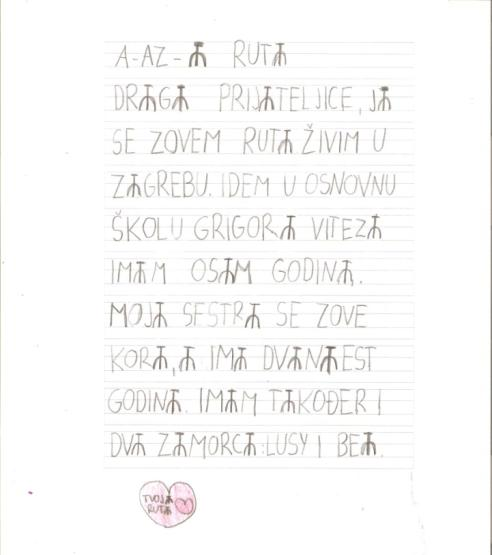 A-AZ-Ⰰ RUTⰀ
DRⰀGⰀ PRIJⰀTELJICE, JⰀ
SE ZOVEM RUTⰀ ŽIVIM U
ZⰀGREBU. IDEM U OSNOVNU
ŠKOLU GRIGORⰀ VITEZⰀ
IMⰀM OSⰀM GODINⰀ.
MOJⰀ SESTRⰀ SE ZOVE
KORⰀ, Ⰰ IMⰀ DVⰀNⰀEST
GODINⰀ. IMⰀM TⰀKOĐER I
DVⰀ ZⰀMORCⰀ: LUSY I BEⰀ.
TVOJⰀ
RUTⰀ